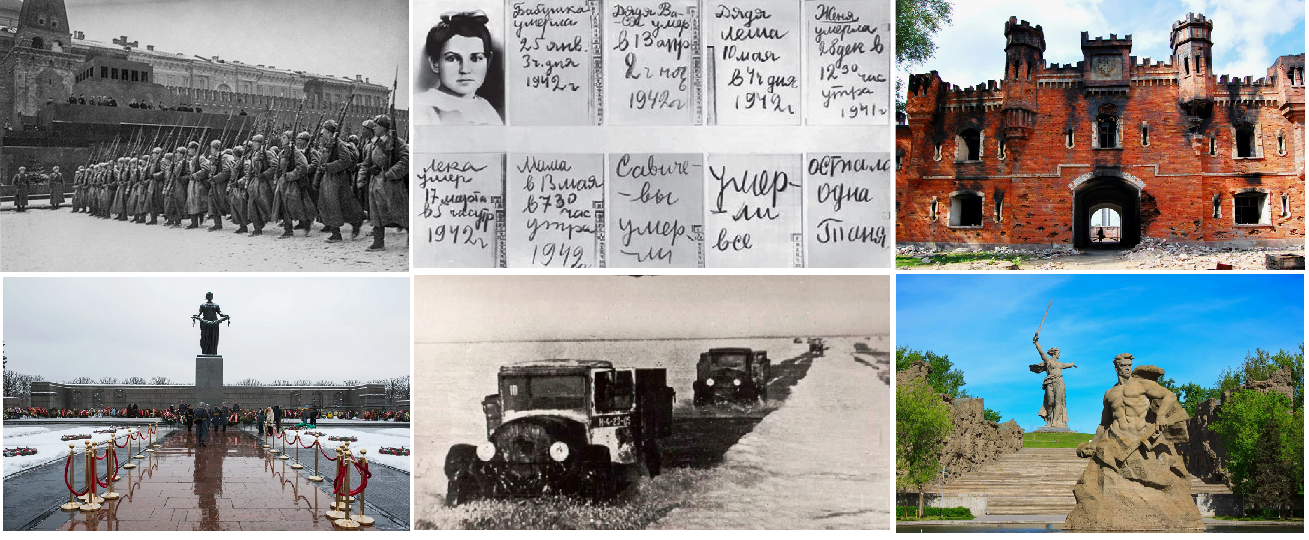 Бабушка
умерла
25 янв.
3 ч. дня
1942 г
Дядя Ва-
ся умер
в 13 апр
2 ч ноч
1942 г
Дядя
Леша
10 мая
в 4 ч дня
1942 г
Женя
умерла
28 дек в
12 30 час
утра
1941 г
Лека
умер
17 марта
в 5 час утр
1942 г
Мама
в 13 мая
в 7 30
час
утра
1942
Савиче-
-вы
умер-
-ли
умер-
-ли
все
остала
одна
Таня